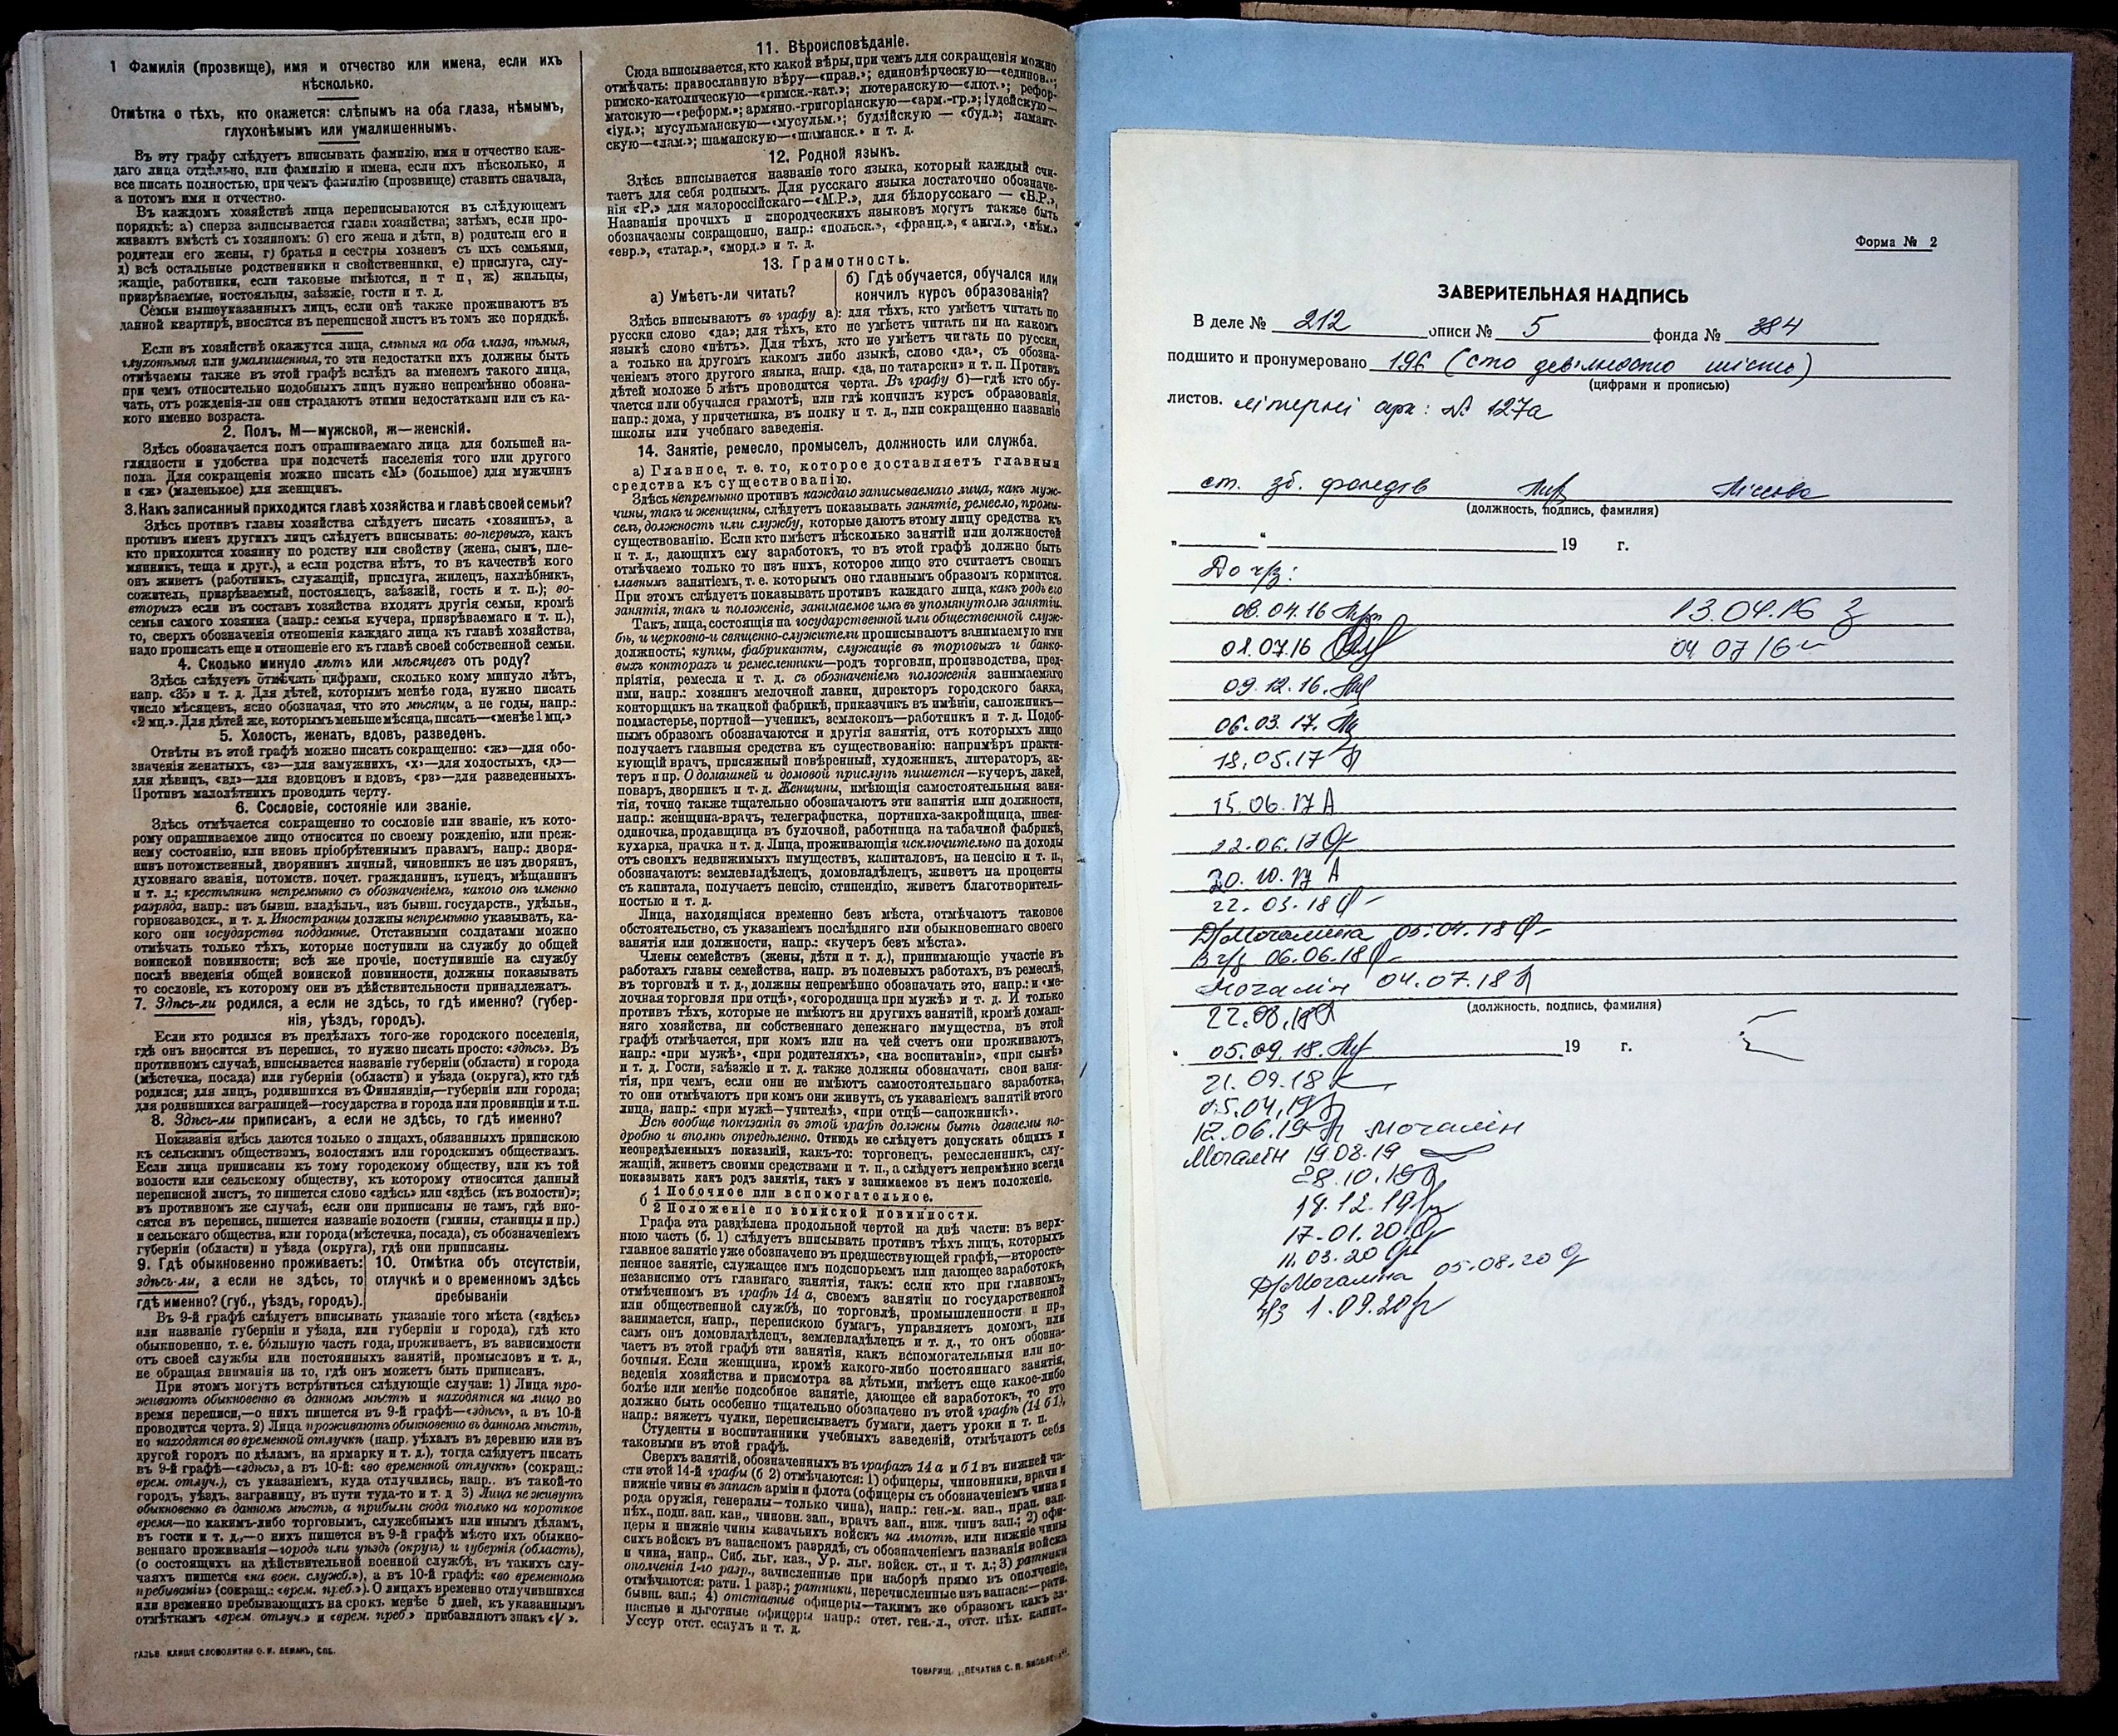 1 Фамилія (прозвище), имя и отчество или имена, если ихъ
нѣсколько.
Отмѣтка о тѣхъ, кто окажется: слѣпымъ на оба глаза, нѣмымъ,
глухонѣмымъ или умалишеннымъ.
Въ эту графу слѣдуетъ вписывать фамилію, имя и отчество каж-
даго лица отдѣльно, или фамилію и имена, если ихъ нѣсколько, и
все писать полностью, при чемъ фамилію (прозвище) ставить сначала,
а потомъ имя и отчество.
Въ каждомъ хозяйствѣ лица переписываются въ слѣдующемъ
порядкѣ: а) сперва записывается глава хозяйства; затѣмъ, если про-
живаютъ вмѣстѣ съ хозяиномъ: б) его жена и дѣти, в) родители его и
родители его жены, г) братья и сестры хозяевъ съ ихъ семьями,
д) всѣ остальные родственники и свойственники, е) прислуга, слу-
жащіе, работники, если таковые имѣются, и т п, ж) жильцы,
призрѣваемые, постояльцы, заѣзжіе, гости и т. д.
Семьи вышеуказанныхъ лицъ, если онѣ также проживаютъ въ
данной квартирѣ, вносятся въ переписной листъ въ томъ же порядкѣ.
Если въ хозяйствѣ окажутся лица, слѣпыя на оба глаза, нѣмыя,
глухонѣмыя или умалишенныя, то эти недостатки ихъ должны быть
отмѣчаемы также въ этой графѣ вслѣдъ за именемъ такого лица,
при чемъ относительно подобныхъ лицъ нужно непремѣнно обозна-
чать, отъ рожденія-ли они страдаютъ этими недостатками или съ ка-
кого именно возраста.
2. Полъ. М—мужской, ж—женскій.
Здѣсь обозначается полъ опрашиваемаго лица для большей на-
глядности и удобства при подсчетѣ населенія того или другого
пола. Для сокращенія можно писать «М» (большое) для мужчинъ
и «ж» (маленькое) для женщинъ.
3. Какъ записанный приходится главѣ хозяйства и главѣ своей семьи?
Здѣсь противъ главы хозяйства слѣдуетъ писать «хозяинъ», а
противъ именъ другихъ лицъ слѣдуетъ вписывать: во-первыхъ, какъ
кто приходится хозяину по родству или свойству (жена, сынъ, пле-
мянникъ, теща и друг.), а если родства нѣтъ, то въ качествѣ кого
онъ живетъ (работникъ, служащій, прислуга, жилецъ, нахлѣбникъ,
сожитель, призрѣваемый, постоялецъ, заѣзжій, гость и т. п.); во-
вторыхъ если въ составъ хозяйства входятъ другія семьи, кромѣ
семьи самого хозяина (напр.: семья кучера, призрѣваемаго и т. п.),
то, сверхъ обозначенія отношенія каждаго лица къ главѣ хозяйства,
надо прописать еще и отношеніе его къ главѣ своей собственной семьи.
4. Сколько минуло лѣтъ или мѣсяцевъ отъ роду?
Здѣсь слѣдуетъ отмѣчать цифрами, сколько кому минуло лѣтъ,
напр. «35» и т. д. Для дѣтей, которымъ менѣе года, нужно писать
число мѣсяцевъ, ясно обозначая, что это мѣсяцы, а не годы, напр.:
«2 мц.». Для дѣтей же, которымъ меньше мѣсяца, писать—«менѣе 1 мц.»
5. Холостъ, женатъ, вдовъ, разведенъ.
Отвѣты въ этой графѣ можно писать сокращенно: «ж»—для обо-
значенія женатыхъ, «з»—для замужнихъ, «х»—для холостыхъ, «д»—
для дѣвицъ, «вд»—для вдовцовъ и вдовъ, «рз»—для разведенныхъ.
Противъ малолѣтнихъ проводить черту.
6. Сословіе, состояніе или званіе.
Здѣсь отмѣчается сокращенно то сословіе или званіе, къ кото-
рому опрашиваемое лицо относится по своему рожденію, или преж-
нему состоянію, или вновь пріобрѣтеннымъ правамъ, напр.: дворя-
нинъ потомственный, дворянинъ личный, чиновникъ не изъ дворянъ,
духовнаго званія, потомств. почет. гражданинъ, купецъ, мѣщанинъ
и т. д.; крестьянинъ непремѣнно съ обозначеніемъ, какого онъ именно
разряда, напр.: изъ бывш. владѣльч., изъ бывш. государств., удѣльн.,
горнозаводск., и т. д. Иностранцы должны непремѣнно указывать, ка-
кого они государства подданные. Отставными солдатами можно
отмѣчать только тѣхъ, которые поступили на службу до общей
воинской повинности; всѣ же прочіе, поступившіе на службу
послѣ введенія общей воинской повинности, должны показывать
то сословіе, къ которому они въ дѣйствительности принадлежатъ.
7. Здѣсь-ли родился, а если не здѣсь, то гдѣ именно? (губер-
нія, уѣздъ, городъ).
Если кто родился въ предѣлахъ того-же городского поселенія,
гдѣ онъ вносится въ перепись, то нужно писать просто: «здѣсь». Въ
противномъ случаѣ, вписывается названіе губерніи (области) и города
(мѣстечка, посада) или губерніи (области) и уѣзда (округа), кто гдѣ
родился; для лицъ, родившихся въ Финляндіи,—губерніи или города;
для родившихся заграницей—государства и города или провинціи и т.п.
8. Здѣсь-ли приписанъ, а если не здѣсь, то гдѣ именно?
Показанія здѣсь даются только о лицахъ, обязанныхъ припискою
къ сельскимъ обществамъ, волостямъ или городскимъ обществамъ.
Если лица приписаны къ тому городскому обществу, или къ той
волости или сельскому обществу, къ которому относится данный
переписной листъ, то пишется слово «здѣсь» или «здѣсь (къ волости)»;
въ противномъ же случаѣ, если они приписаны не тамъ, гдѣ вно-
сятся въ перепись, пишется названіе волости (гмины, станицы и пр.)
и сельскаго общества, или города (мѣстечка, посада), съ обозначеніемъ
губерніи (области) и уѣзда (округа), гдѣ они приписаны.
9. Гдѣ обыкновенно проживаетъ:
здѣсь-ли, а если не здѣсь, то
гдѣ именно? (губ., уѣздъ, городъ).
10. Отмѣтка объ отсутствіи,
отлучкѣ и о временномъ здѣсь
пребываніи
Въ 9-й графѣ слѣдуетъ вписывать указаніе того мѣста («здѣсь»
или названіе губерніи и уѣзда, или губерніи и города), гдѣ кто
обыкновенно, т. е. большую часть года, проживаетъ, въ зависимости
отъ своей службы или постоянныхъ занятій, промысловъ и т. д.,
не обращая вниманія на то, гдѣ онъ можетъ быть приписанъ.
При этомъ могутъ встрѣтиться слѣдующіе случаи: 1) Лица про-
живаютъ обыкновенно въ данномъ мѣстѣ и находятся на лицо во
время переписи,—о нихъ пишется въ 9-й графѣ—«здѣсь», а въ 10-й
проводится черта. 2) Лица проживаютъ обыкновенно въ данномъ мѣстѣ,
но находятся во временной отлучкѣ (напр. уѣхалъ въ деревню или въ
другой городъ по дѣламъ, на ярмарку и т. д.), тогда слѣдуетъ писать
въ 9-й графѣ—«здѣсь», а въ 10-й: «во временной отлучкѣ» (сокращ.:
врем. отлуч.), съ указаніемъ, куда отлучились, напр.. въ такой-то
городъ, уѣздъ, заграницу, въ пути туда-то и т. д 3) Лица не живутъ
обыкновенно въ данномъ мѣстѣ, а прибыли сюда только на короткое
время—по какимъ-либо торговымъ, служебнымъ или инымъ дѣламъ,
въ гости и т. д.,—о нихъ пишется въ 9-й графѣ мѣсто ихъ обыкно-
веннаго проживанія—городъ или уѣздъ (округъ) и губернія (область),
(о состоящихъ на дѣйствительной военной службѣ, въ такихъ слу-
чаяхъ пишется «на воен. служб.»), а въ 10-й графѣ: «во временномъ
пребываніи» (сокращ.: «врем. преб.»). О лицахъ временно отлучившихся
или временно пребывающихъ на срокъ менѣе 5 дней, къ указаннымъ
отмѣткамъ «врем. отлуч.» и «врем. преб.» прибавляютъ знакъ «V».
ГАЛЬВ. КЛИШЕ СЛОВОЛИТНИ О. И. ЛЕМАНЪ, СПБ.
11. Вѣроисповѣданіе.
Сюда вписывается, кто какой вѣры, при чемъ для сокращенія можно
отмѣчать: православную вѣру—«прав.»; единовѣрческую—«единов.»;
римско-католическую—«римск.-кат.»; лютеранскую—«лют.»; рефор-
матскую—«реформ.»; армяно-григоріанскую—«арм.-гр.»; іудейскую—
«іуд.»; мусульманскую—«мусульм.»; буддійскую — «буд.»; ламаит-
скую—«лам.»; шаманскую—«шаманск.» и т. д.
12. Родной языкъ.
Здѣсь вписывается названіе того языка, который каждый счи-
таетъ для себя роднымъ. Для русскаго языка достаточно обозначе-
нія «Р.» для малороссійскаго—«М.Р.», для бѣлорусскаго — «Б.Р.»,
Названія прочихъ и инородческихъ языковъ могутъ также быть
обозначаемы сокращенно, напр.: «польск.», «франц.», «англ.», «нѣм.»
«евр.», «татар.», «морд.» и т. д.
13. Грамотность.
а) Умѣетъ-ли читать?
б) Гдѣ обучается, обучался или
кончилъ курсъ образованія?
Здѣсь вписываютъ въ графу а): для тѣхъ, кто умѣетъ читать по
русски слово «да»; для тѣхъ, кто не умѣетъ читать ни на какомъ
языкѣ слово «нѣтъ». Для тѣхъ, кто не умѣетъ читать по русски,
а только на другомъ какомъ либо языкѣ, слово «да», съ обозна-
ченіемъ этого другого языка, напр. «да, по татарски» и т. п. Противъ
дѣтей моложе 5 лѣтъ проводится черта. Въ графу б)—гдѣ кто обу-
чается или обучался грамотѣ, или гдѣ кончилъ курсъ образованія,
напр.: дома, у причетника, въ полку и т. д., или сокращенно названіе
школы или учебнаго заведенія.
14. Занятіе, ремесло, промыселъ, должность или служба.
а) Главное, т. е. то, которое доставляетъ главныя
средства къ существованію.
Здѣсь непремѣнно противъ каждаго записываемаго лица, какъ муж-
чины, такъ и женщины, слѣдуетъ показывать занятіе, ремесло, промы-
селъ, должность или службу, которые даютъ этому лицу средства къ
существованію. Если кто имѣетъ нѣсколько занятій или должностей
и т. д., дающихъ ему заработокъ, то въ этой графѣ должно быть
отмѣчаемо только то изъ нихъ, которое лицо это считаетъ своимъ
главнымъ занятіемъ, т. е. которымъ оно главнымъ образомъ кормится.
При этомъ слѣдуетъ показывать противъ каждаго лица, какъ родъ его
занятія, такъ и положеніе, занимаемое имъ въ упомянутомъ занятіи.
Такъ, лица, состоящія на государственной или общественной служ-
бѣ, и церковно-и священно-служители прописываютъ занимаемую ими
должность; купцы, фабриканты, служащіе въ торговыхъ и банко-
выхъ конторахъ и ремесленники—родъ торговли, производства, пред-
пріятія, ремесла и т. д. съ обозначеніемъ положенія занимаемаго
ими, напр.: хозяинъ мелочной лавки, директоръ городского банка,
конторщикъ на ткацкой фабрикѣ, приказчикъ въ имѣніи, сапожникъ—
подмастерье, портной—ученикъ, землекопъ—работникъ и т. д. Подоб-
нымъ образомъ обозначаются и другія занятія, отъ которыхъ лицо
получаетъ главныя средства къ существованію: напримѣръ практи-
кующій врачъ, присяжный повѣренный, художникъ, литераторъ, ак-
теръ и пр. О домашней и домовой прислугѣ пишется—кучеръ, лакей,
поваръ, дворникъ и т. д. Женщины, имѣющія самостоятельныя заня-
тія, точно также тщательно обозначаютъ эти занятія или должности,
напр.: женщина-врачъ, телеграфистка, портниха-закройщица, швея-
одиночка, продавщица въ булочной, работница на табачной фабрикѣ,
кухарка, прачка и т. д. Лица, проживающія исключительно на доходы
отъ своихъ недвижимыхъ имуществъ, капиталовъ, на пенсію и т. п.,
обозначаютъ: землевладѣлецъ, домовладѣлецъ, живетъ на проценты
съ капитала, получаетъ пенсію, стипендію, живетъ благотворитель-
ностью и т. д.
Лица, находящіяся временно безъ мѣста, отмѣчаютъ таковое
обстоятельство, съ указаніемъ послѣдняго или обыкновеннаго своего
занятія или должности, напр.: «кучеръ безъ мѣста».
Члены семействъ (жены, дѣти и т. д.), принимающіе участіе въ
работахъ главы семейства, напр. въ полевыхъ работахъ, въ ремеслѣ,
въ торговлѣ и т. д., должны непремѣнно обозначать это, напр.: и «ме-
лочная торговля при отцѣ», «огородница при мужѣ» и т. д. И только
противъ тѣхъ, которые не имѣютъ ни другихъ занятій, кромѣ домаш-
няго хозяйства, ни собственнаго денежнаго имущества, въ этой
графѣ отмѣчается, при комъ или на чей счетъ они проживаютъ,
напр.: «при мужѣ», «при родителяхъ», «на воспитаніи», «при сынѣ»
и т. д. Гости, заѣзжіе и т. д. также должны обозначать свои заня-
тія, при чемъ, если они не имѣютъ самостоятельнаго заработка,
то они отмѣчаютъ при комъ они живутъ, съ указаніемъ занятій этого
лица, напр.: «при мужѣ—учителѣ», «при отцѣ—сапожникѣ».
Всѣ вообще показанія въ этой графѣ должны быть даваемы по-
дробно и вполнѣ опредѣленно. Отнюдь не слѣдуетъ допускать общихъ и
неопредѣленныхъ показаній, какъ-то: торговецъ, ремесленникъ, слу-
жащій, живетъ своими средствами и т. п., а слѣдуетъ непремѣнно всегда
показывать какъ родъ занятія, такъ и занимаемое въ немъ положеніе.
б 1 Побочное или вспомогательное.
2 Положеніе по воинской повинности.
Графа эта раздѣлена продольной чертой на двѣ части: въ верх-
нюю часть (б. 1) слѣдуетъ вписывать противъ тѣхъ лицъ, которыхъ
главное занятіе уже обозначено въ предшествующей графѣ,—второсте-
пенное занятіе, служащее имъ подспорьемъ или дающее заработокъ,
независимо отъ главнаго занятія, такъ: если кто при главномъ,
отмѣченномъ въ графѣ 14 а, своемъ занятіи по государственной
или общественной службѣ, по торговлѣ, промышленности и пр.,
занимается, напр., перепискою бумагъ, управляетъ домомъ, или
самъ онъ домовладѣлецъ, землевладѣлецъ и т. д., то онъ обозна-
чаетъ въ этой графѣ эти занятія, какъ вспомогательныя или по-
бочныя. Если женщина, кромѣ какого-либо постояннаго занятія,
веденія хозяйства и присмотра за дѣтьми, имѣетъ еще какое-либо
болѣе или менѣе подсобное занятіе, дающее ей заработокъ, то это
должно быть особенно тщательно обозначено въ этой графѣ (14 б 1),
напр.: вяжетъ чулки, переписываетъ бумаги, даетъ уроки и т. п.
Студенты и воспитанники учебныхъ заведеній, отмѣчаютъ себя
таковыми въ этой графѣ.
Сверхъ занятій, обозначенныхъ въ графахъ 14 а и б 1 въ нижней ча-
сти этой 14-й графы (б 2) отмѣчаются: 1) офицеры, чиновники, врачи и
нижніе чины въ запасѣ арміи и флота (офицеры съ обозначеніемъ чина и
рода оружія, генералы—только чина), напр.: ген.-м. зап., прап. зап.
пѣх., подп. зап. кав., чиновн. зап., врачъ зап., ниж. чинъ зап.; 2) офи-
церы и нижніе чины казачьихъ войскъ на льготѣ, или нижніе чины
сихъ войскъ въ запасномъ разрядѣ, съ обозначеніемъ названія войска
и чина, напр., Сиб. льг. каз., Ур. льг. войск. ст., и т. д.; 3) ратники
ополченія 1-го разр., зачисленные при наборѣ прямо въ ополченіе,
отмѣчаются: ратн. 1 разр.; ратники, перечисленные изъ запаса:—ратн.
бывш. зап.; 4) отставные офицеры—такимъ же образомъ какъ за-
пасные и льготные офицеры напр.: отст. ген.-л., отст. пѣх. капит.,
Уссур отст. есаулъ и т. д.
ТОВАРИЩ. „ПЕЧАТНЯ С. П. ЯКОВЛЕВА".
Форма № 2
ЗАВЕРИТЕЛЬНАЯ НАДПИСЬ
В деле № 212 описи № 5 фонда № 384
подшито и пронумеровано 196 (сто дев'яносто шість)
(цифрами и прописью)
листов. літерні арк: № 127а
ст. зб. фондів
(должность, подпись, фамилия)
„ “ 19 г.
До ч/з:
08.04.16 13.04.16
01.07.16 04 07 16
09.12.16.
06.03.17.
18.05.17
15.06.17
22.06.17
20.10.17
22.03.18
Д/Мочаліна 05.04.18
В ч/з 06.06.18
Мочалін 04.07.18
(должность, подпись, фамилия)
22.08.18
05.09.18.
19 г.
21.09.18
05.04.19
12.06.19 Мочалін
Мочалін 19.08.19
28.10.19
18.12.19
17.01.20
11.03.20
Д/Мочаліна 05.08.20
ч/з 1.09.20